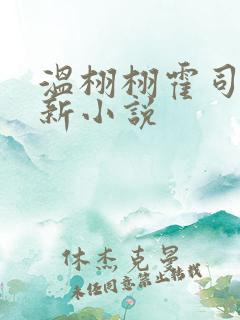 温栩栩霍司
新小说
休杰克曼
未经同意禁止转载